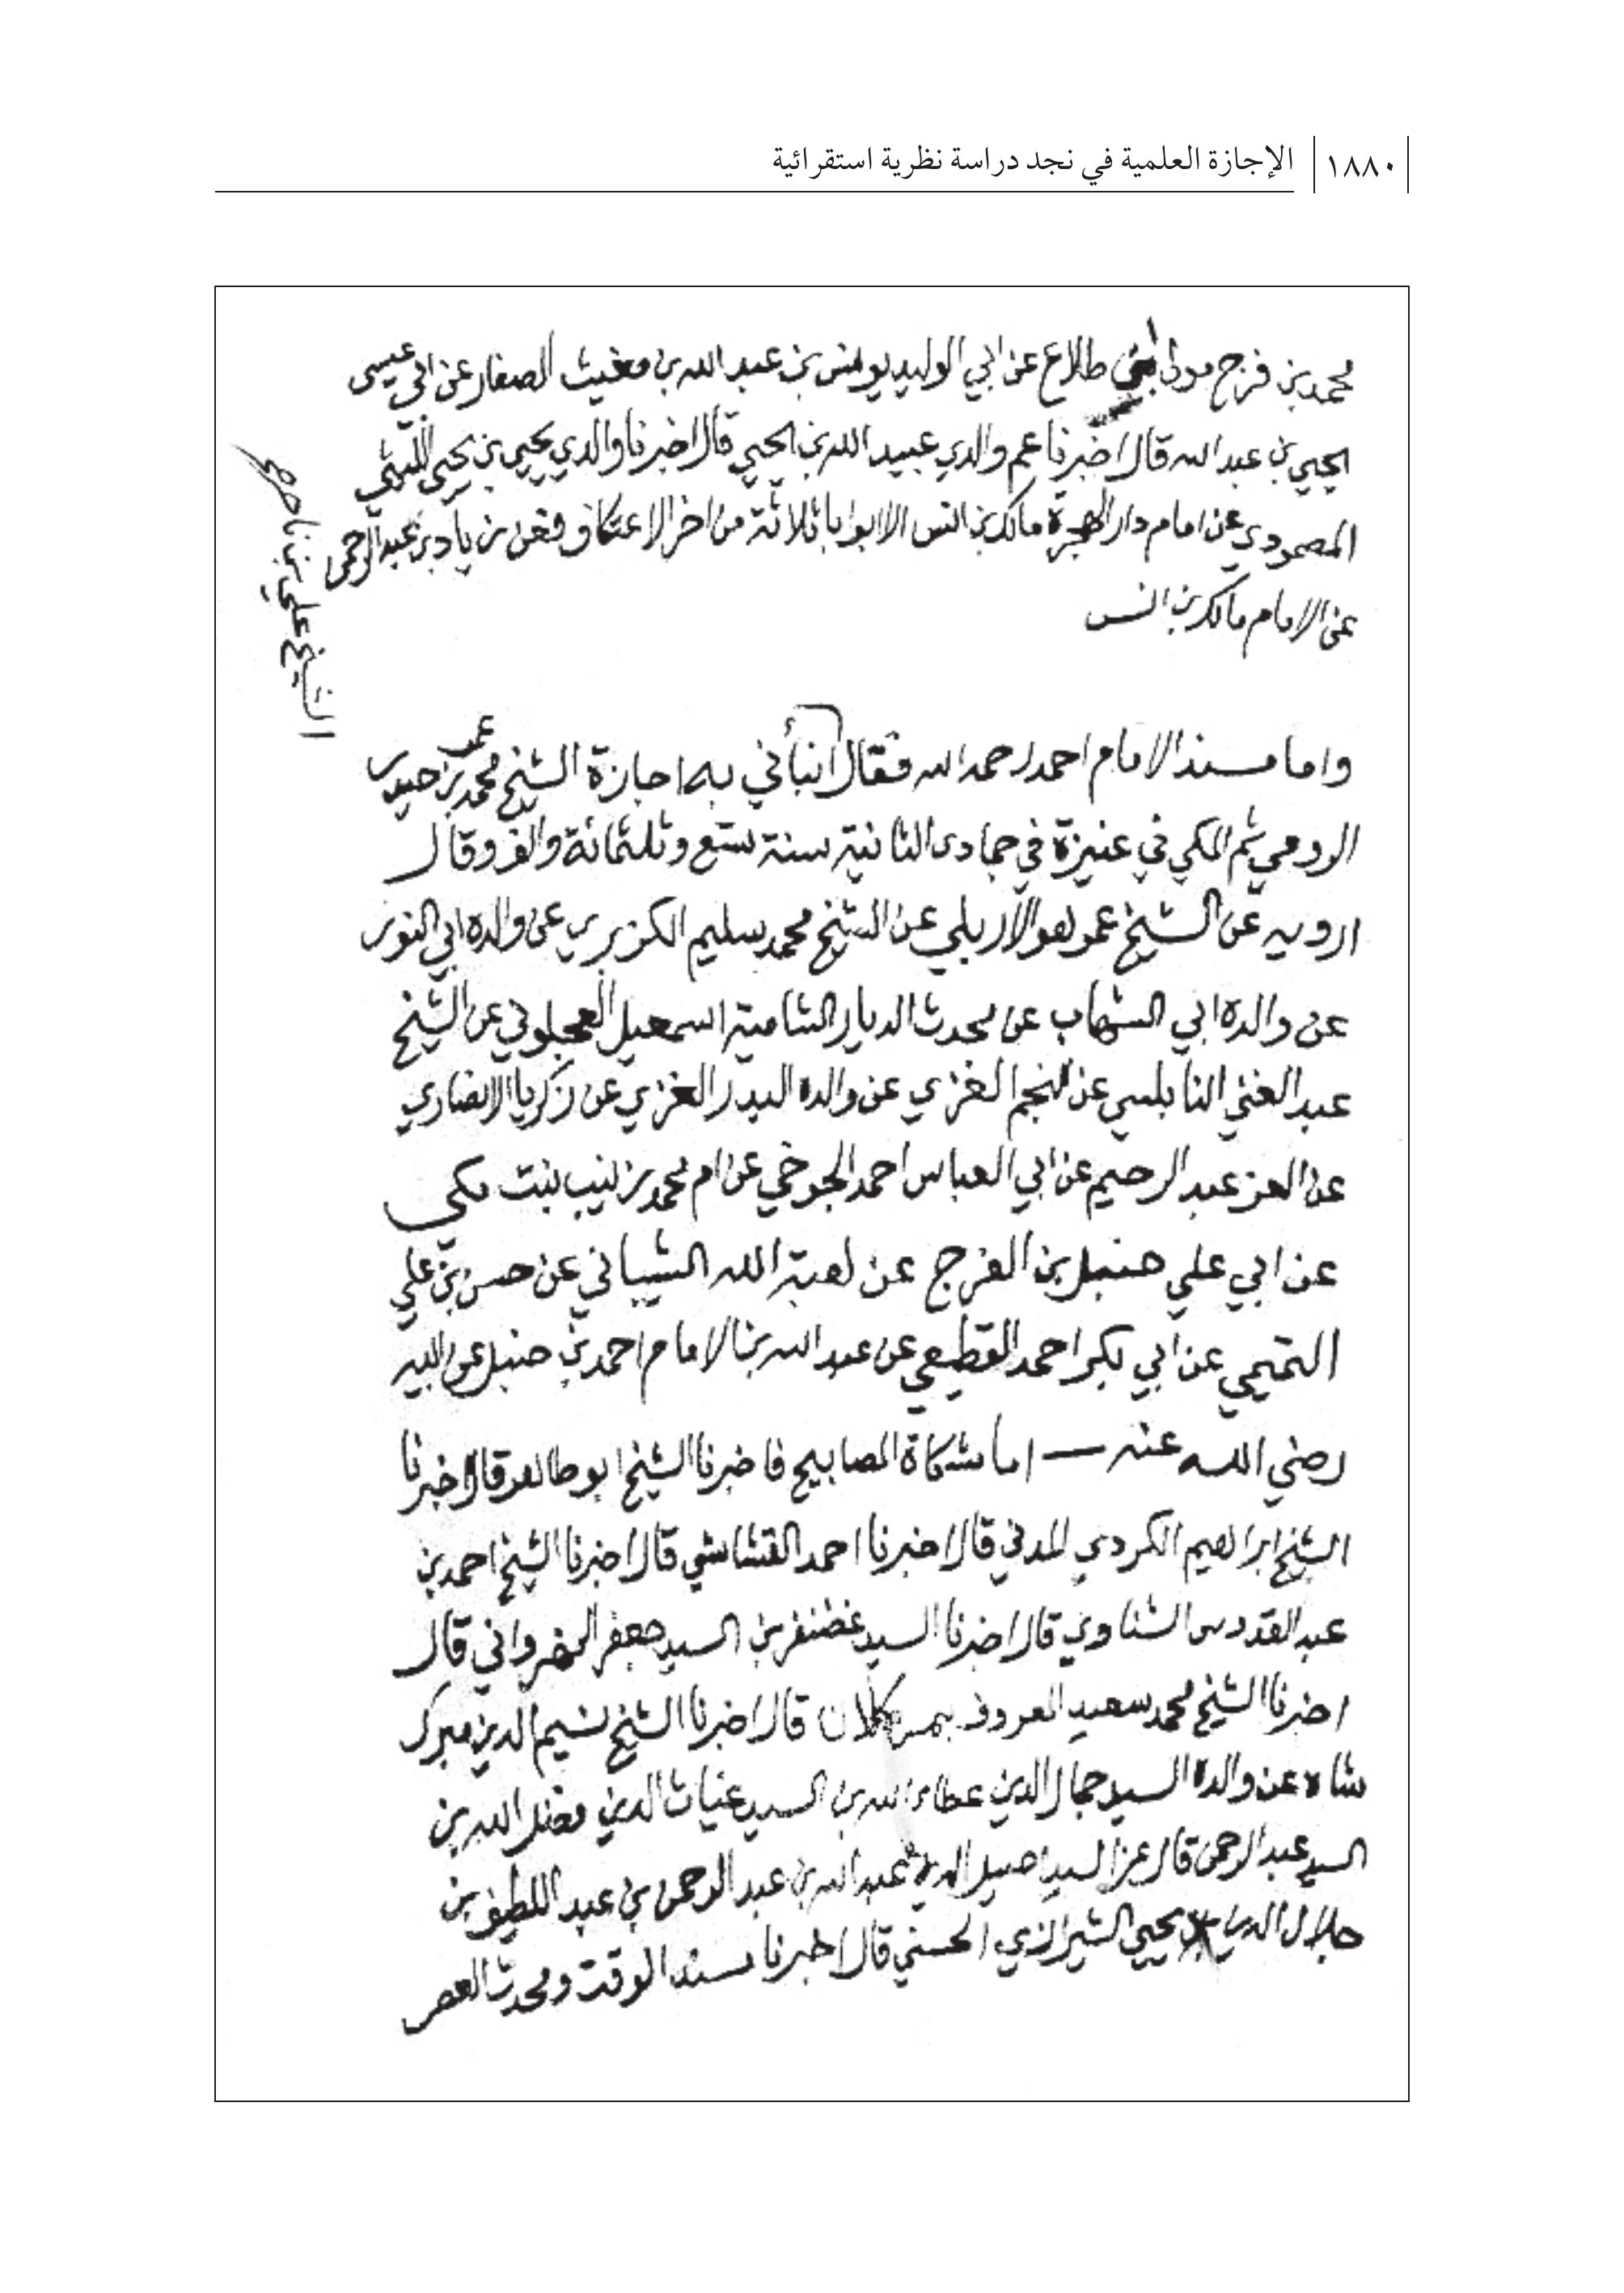 ١٨٨٠ الإجازة العلمية في نجد دراسة نظرية استقرائية
محمد بن فرج مولى ابني طلاع عن ابي الوليد يونس بن عبد الله بن مغيث الصفار عن ابي عيسى
يحيى بن عبد الله قال اخبرنا عم والدي عبيد الله بن يحيى قال اخبرنا والدي يحيى بن يحيى الليثي
المصمودي عن امام دار الهجرة مالك بن انس الا ابوابا ثلاثة من اخر الاعتكاف فعن زياد بن عبد الرحمن
عن الامام مالك بن انس
الشيخ علي بن ناصر
واما مسند الامام احمد رحمه الله فقال انبأني به اجازة الشيخ محمد عمر بن حيدر
الرومي ثم المكي في عنيزة في جمادى الثانية سنة تسع وثلثمائة والف وقال
ارويه عن الشيخ عمر هو الاربلي عن الشيخ محمد سليم الكزبري عن والده ابي النور
عن والده ابي الشهاب عن محدث الديار الشامية اسمعيل العجلوني عن الشيخ
عبد الغني النابلسي عن النجم الغزي عن والده البدر الغزي عن زكريا الانصاري
عن العز عبد الرحيم عن ابي العباس احمد الجوخي عن ام محمد زينب بنت مكي
عن ابي علي حنبل بن الفرج عن هبة الله الشيباني عن حسن بن علي
التميمي عن ابي بكر احمد القطيعي عن عبد الله بن الامام احمد بن حنبل عن ابيه
رضي الله عنه — اما مشكاة المصابيح فاخبرنا الشيخ ابو طاهر قال اخبرنا
الشيخ ابراهيم الكردي المدني قال اخبرنا احمد القشاشي قال اخبرنا الشيخ احمد بن
عبد القدوس الشناوي قال اخبرنا السيد غضنفر بن السيد جعفر النهرواني قال
اخبرنا الشيخ محمد سعيد المعروف بمير كلان قال اخبرنا الشيخ نسيم الدين ميرك
شاه عن والده السيد جمال الدين عطاء الله بن السيد غياث الدين فضل الله بن
السيد عبد الرحمن قال عن السيد اصيل الدين عبد الله بن عبد الرحمن بن عبد اللطيف بن
جلال الدين يحيى الشيرازي الحسني قال اخبرنا مسند الوقت ومحدث العصر